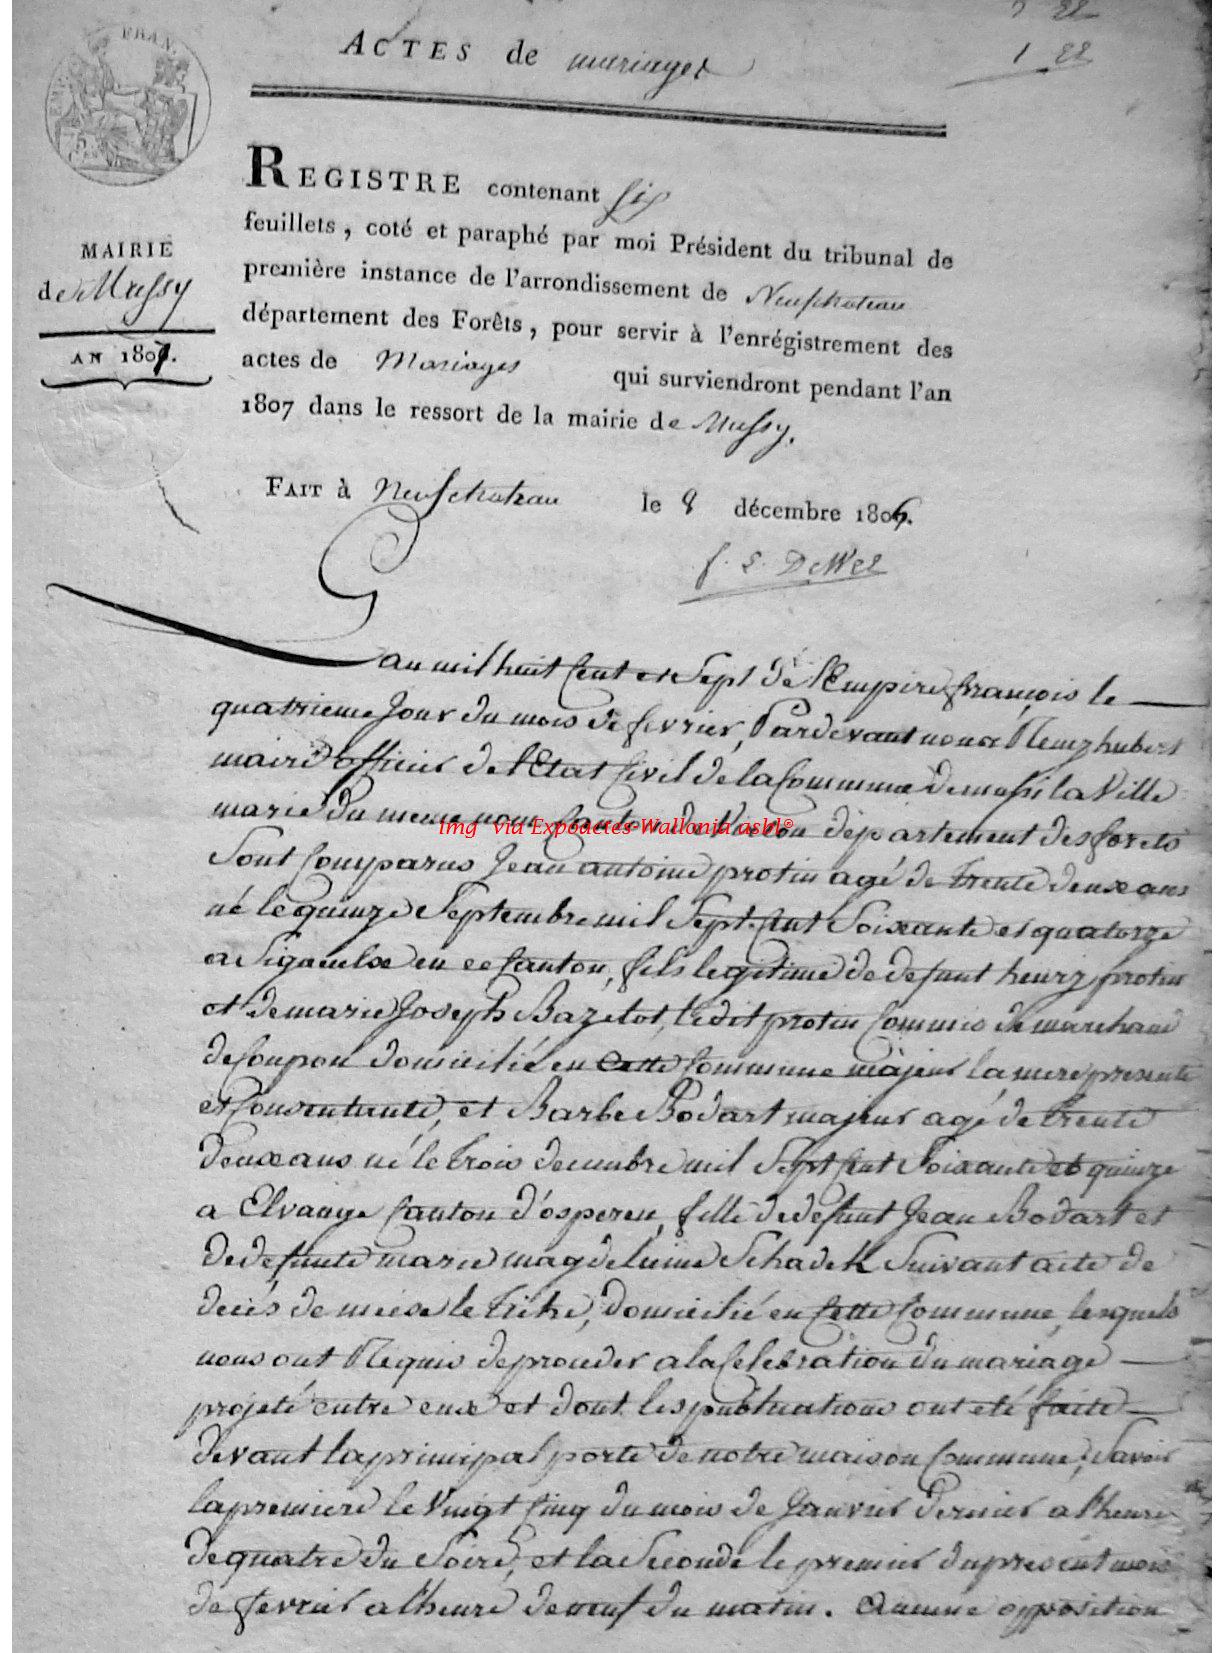 ACTES de mariages
1 22
FRAN.
REGISTRE contenant six
feuillets, coté et paraphé par moi Président du tribunal de
première instance de l'arrondissement de Neufchateau
département des Forêts, pour servir à l'enrégistrement des
actes de Mariages qui surviendront pendant l'an
1807 dans le ressort de la mairie de Mussy.
MAIRIE
de Mussy
AN 1807.
FAIT à Neufchateau le 8 décembre 1806.
L'an mil huit Cent et Sept de l'Empire françois le
quatrieme Jour du mois de fevrier, Pardevant nous Remy hubert
maire officier de l'Etat Civil de la Commune de mussi la Ville
marie du meme nom Canton de Virton département des forets
Sont Comparus Jean antoine protin agé de trente deux ans
né le quinze Septembre mil Sept Cent Soixante et quatorze
a Signeulx en ce Canton, fils legitime de defunt henry protin
et de marie Joseph Bazelot, ledit protin Commis de marchand
de Coupon domicilié en Cette Commune majeur la mere presente
et Consentante, et Barbe Bodart majeur agé de trente
deux ans né le trois decembre mil Sept Cent Soixante et quinze
a Elvange Canton d'osperen, fille de defunt Jean Bodart et
de defunte marie magdeleine Schadek Suivant acte de
décés de domicilié en Cette Commune, lesquels
nous ont Requis de proceder a la Celebration du mariage
projeté entre eux et dont les publications ont eté faite
devant la principal porte de notre maison Commune, Savoir
la premiere le Vingt Cinq du mois de Janvier dernier a l'heure
de quatre du Soire, et la Seconde le premier du present mois
de fevrier a l'heure de neuf du matin. Aucune opposition
img via Expoactes-Wallonia asbl©